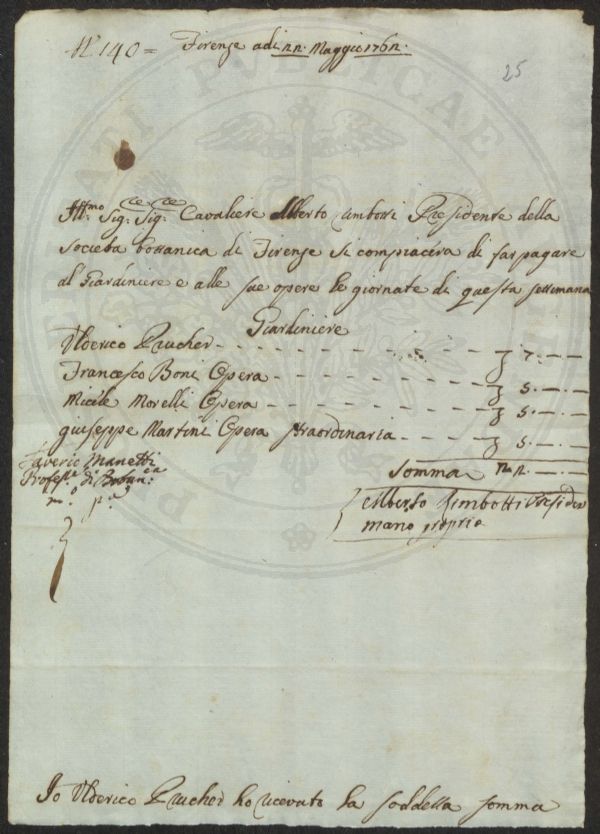 N.° 140 = Firenze adi 22: Maggio 1762:
25
Ill:mo Sig:re Sig:re Cavaliere Alberto Rimbotti Presidente della
Società bottanica di Firenze si compiacerà di far pagare
al Giardiniere e alle sue opere le giornate di questa settimana
Giardiniere
Ulderico Prucher - - - - - - 7. — . —
Francesco Boni Opera - - - - - - 5. — . —
Micele Morelli Opera - - - - - - 5. — . —
giuseppe Martini Opera straordinaria - - - - 5. — . —
Saverio Manetti
Profess:e di Botan:ca
m:o p:a
Somma 22. — . —
Alberto Rimbotti Presiden
mano propria
Io Ulderico Prucher ho ricevuto la soddetta somma